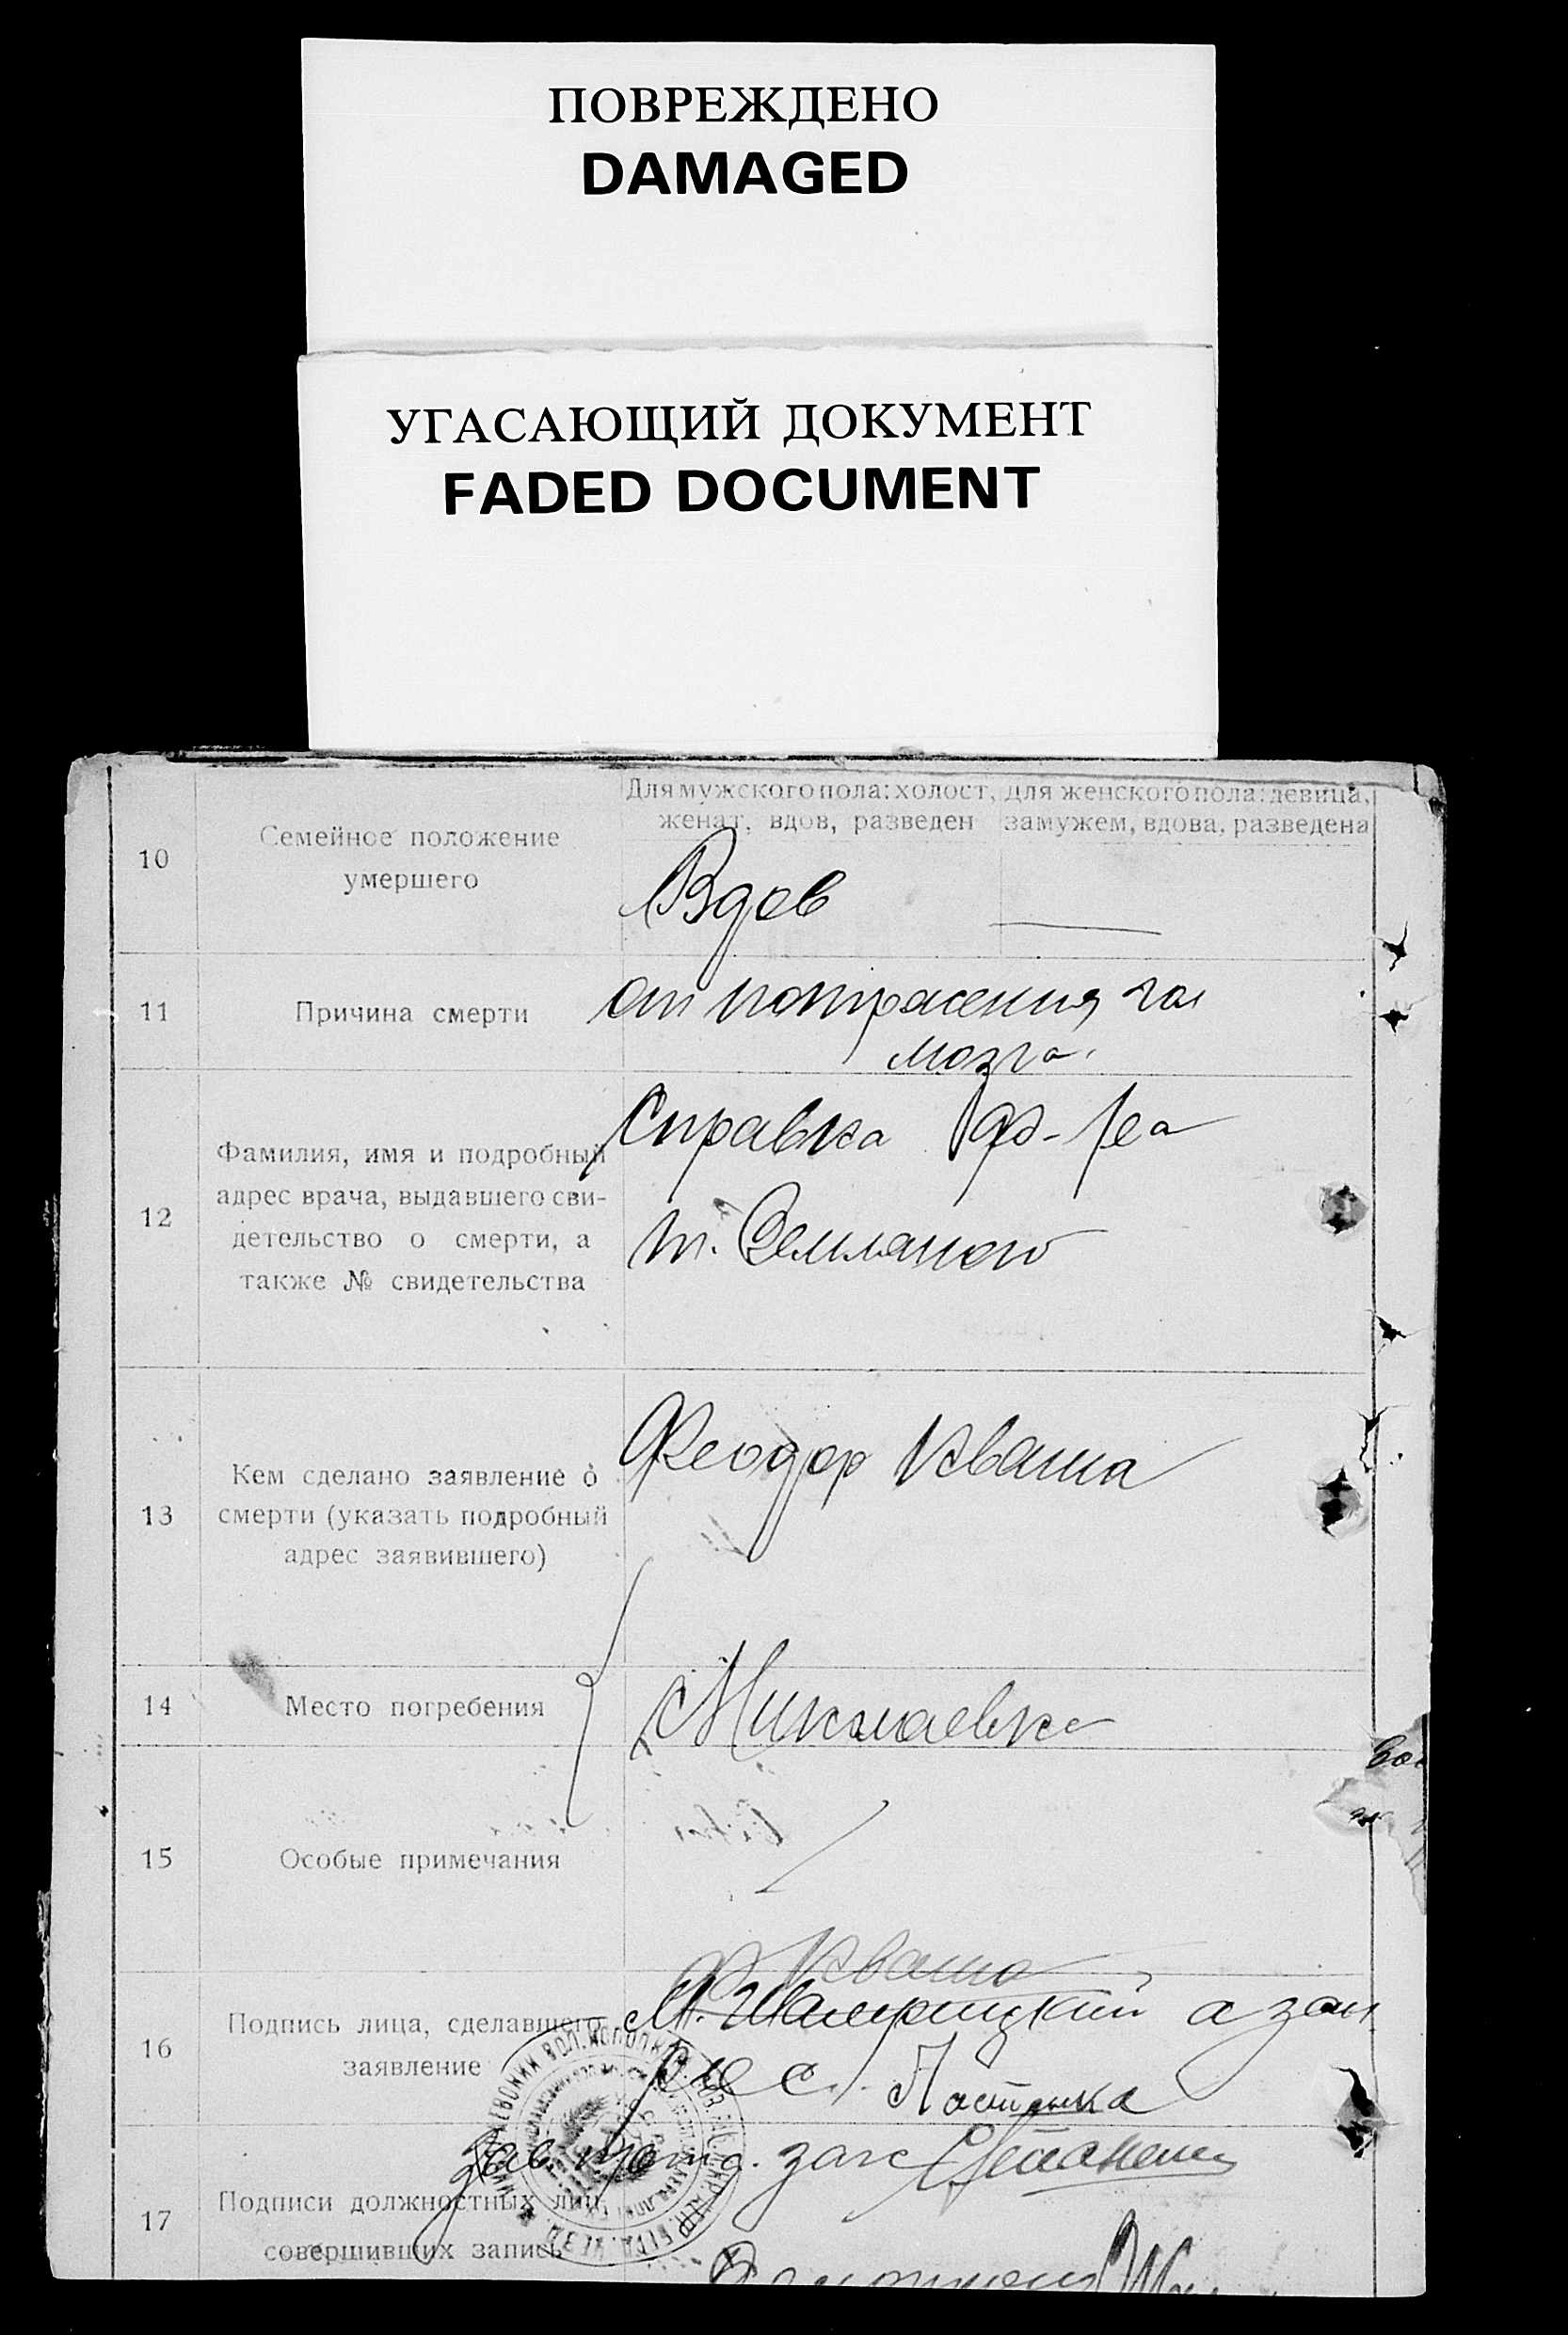 ПОВРЕЖДЕНО
DAMAGED
УГАСАЮЩИЙ ДОКУМЕНТ
FADED DOCUMENT
Для мужского пола: холост, женат, вдов, разведен
для женского пола: девица, замужем, вдова, разведена
10
Семейное положение
умершего
Вдов
11
Причина смерти
от потрасения гол
мозга.
12
Фамилия, имя и подробный
адрес врача, выдавшего сви-
детельство о смерти, а
также № свидетельства
Справка
т.
13
Кем сделано заявление о
смерти (указать подробный
адрес заявившего)
Феодор Кваша
14
Место погребения
Миколаевка
15
Особые примечания
16
Подпись лица, сделавшего
заявление
Ф Кваша
а зан
17
Подписи должностных лиц,
совершивших запись
Зав. загс